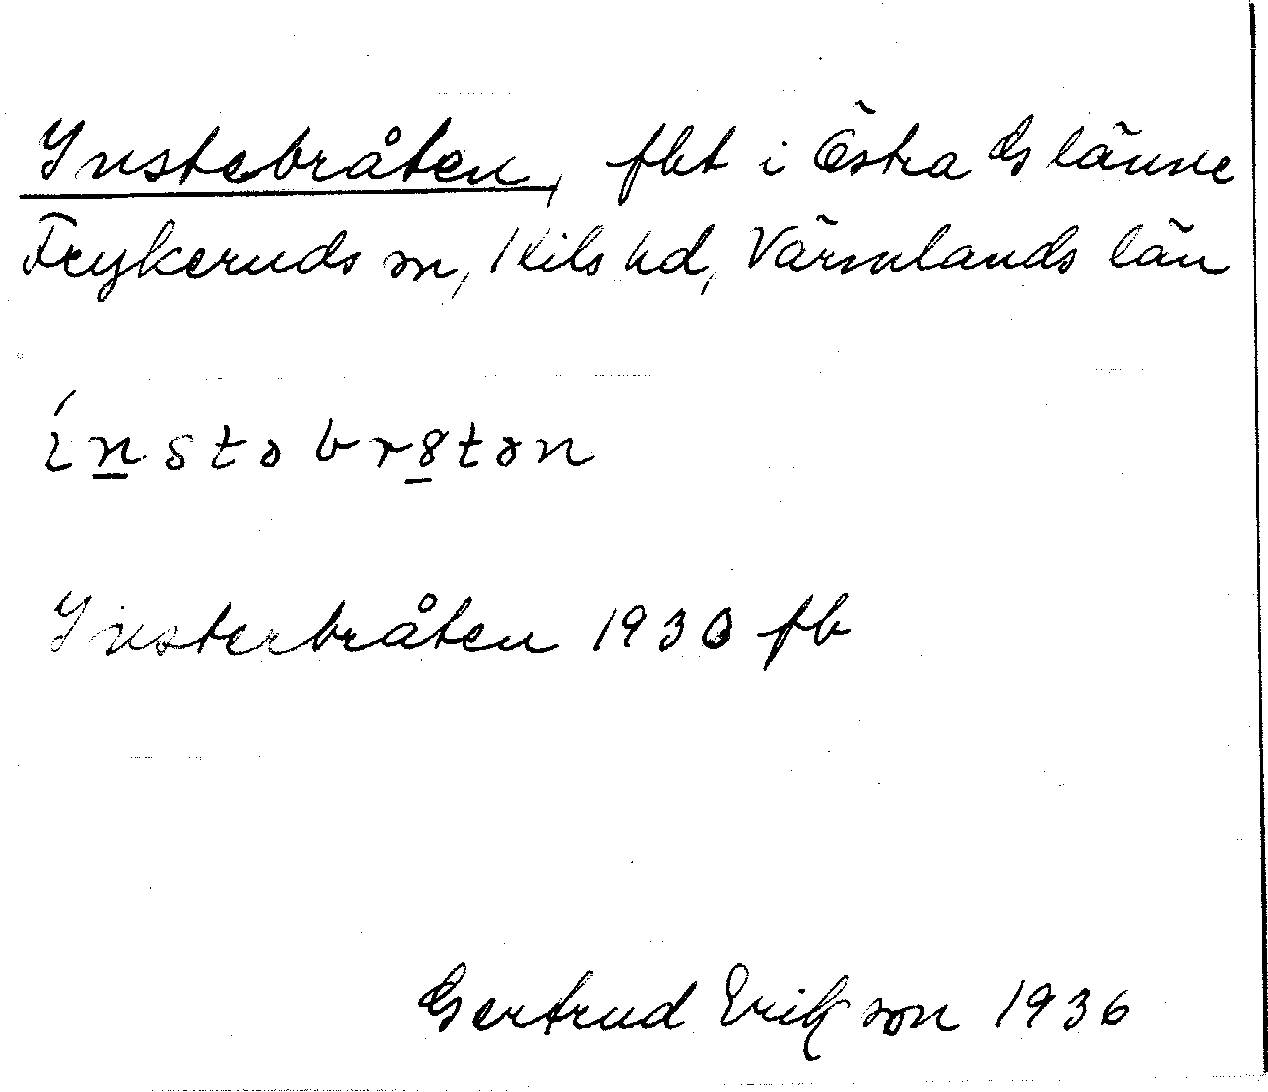 Instebråten, fbt i Östra Glänne
Frykeruds sn, Kils hd, Värmlands län
ínstəbr8tən
Insterbråten 1930 fb
Gertrud Erikson 1936